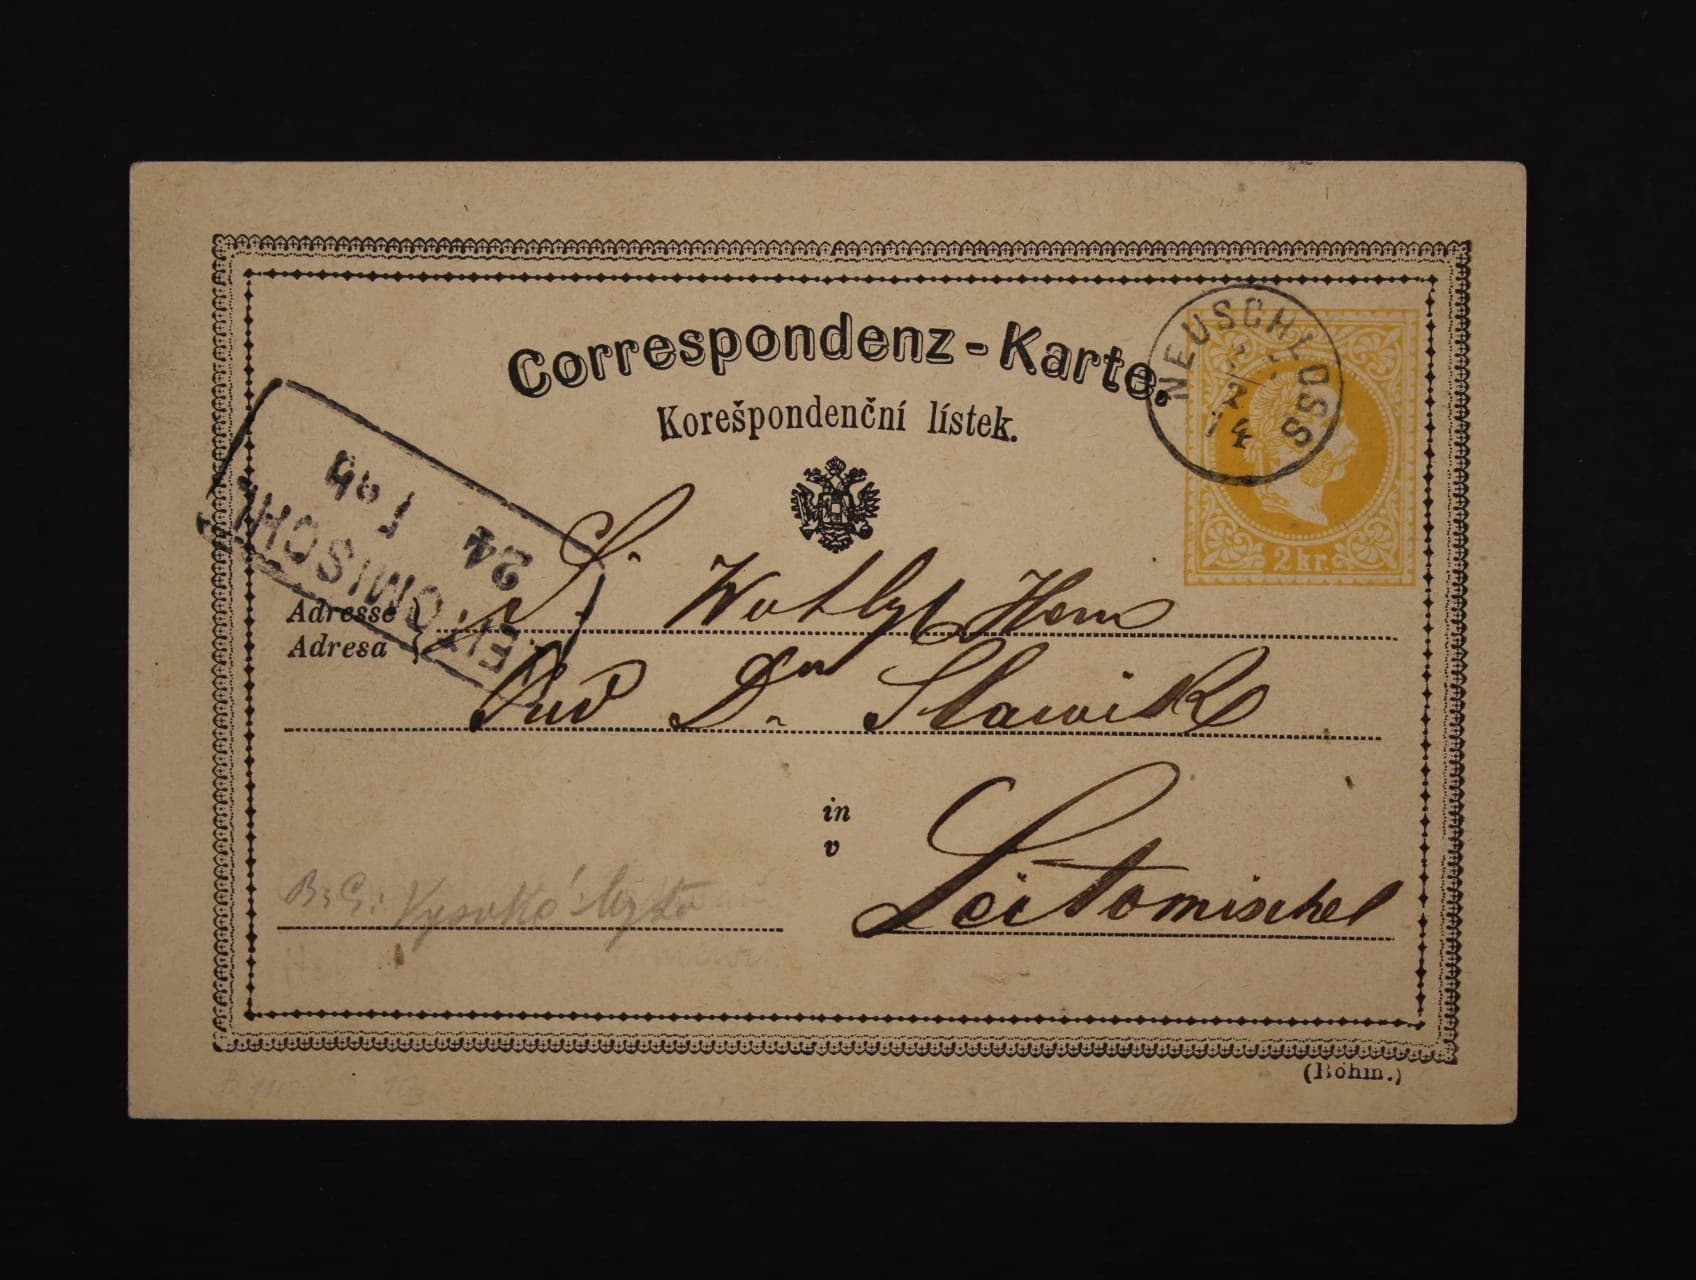 Correspondenz-Karte.
Korešpondenční lístek.
NEUSCHLOSS
2
74
2 kr.
24 1
LEITOMISCHL
Adresse
Adresa
S. Wohlgb Herrn
Dr Slawik
in
v
Leitomischel
B: G: Vysoké Mýto
(Böhm.)